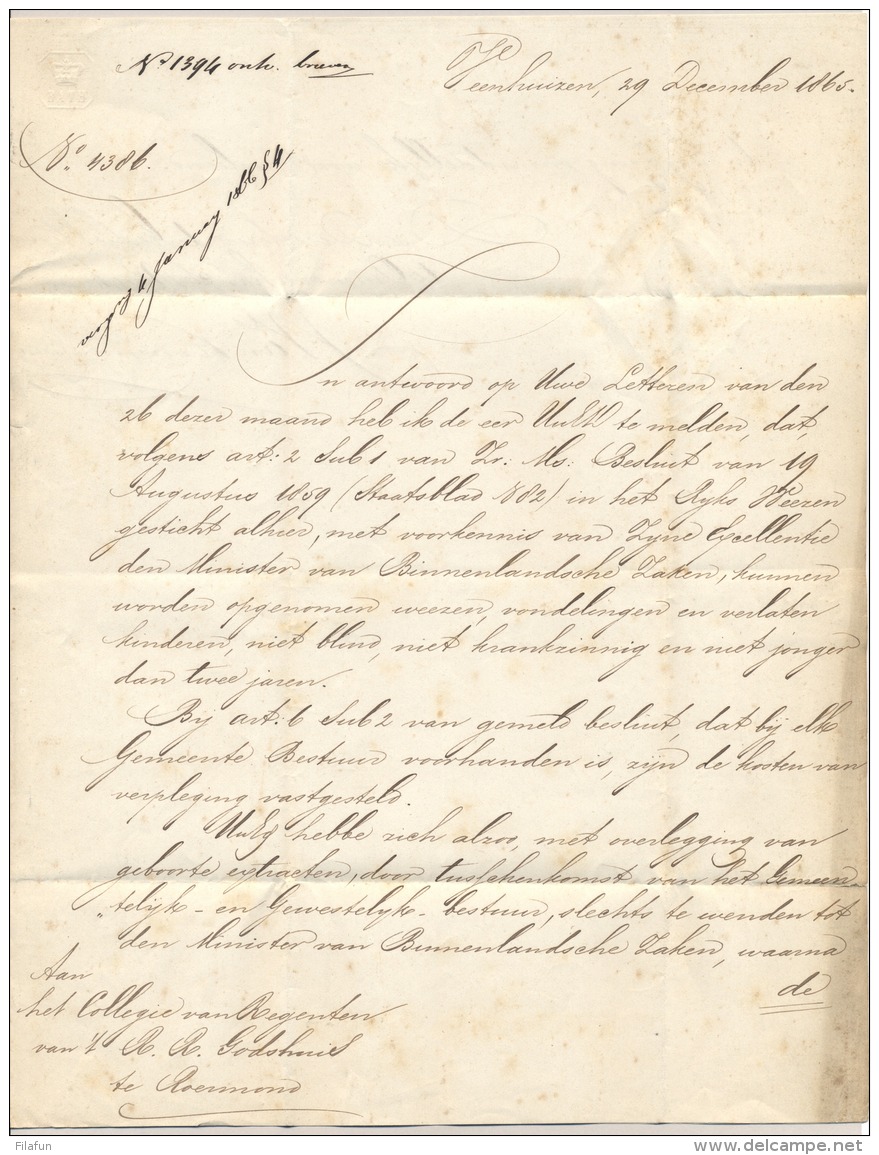 No 1394 ontv. brieven
Veenhuizen, 29 December 1865.
No. 4386.
verg. 4 January 1866 § 4
In antwoord op Uwe Letteren van den
26 dezer maand heb ik de eer UwEA te melden, dat,
volgens art: 2 Sub 1 van Zr: Ms: Besluit van 19
Augustus 1859 (Staatsblad N82) in het Ryks Weezen
gesticht alhier, met voorkennis van Zyne Excellentie
den Minister van Binnenlandsche Zaken, kunnen
worden opgenomen weezen, vondelingen en verlaten
kinderen, niet blind, niet krankzinnig en niet jonger
dan twee jaren.
Bij art: 6 Sub 2 van gemeld besluit, dat bij elk
Gemeente Bestuur voorhanden is, zijn de kosten van
verpleging vastgesteld.
UwEd hebbe zich alzoo, met overlegging van
geboorte extracten, door tusschenkomst van het Gemeen
„telijk - en Gewestelyk - bestuur, slechts te wenden tot
den Minister van Binnenlandsche Zaken, waarna
de
Aan
het Collegie van Regenten
van 't R. K. Godshuis
te Roermond
Filafun
www.delcampe.net